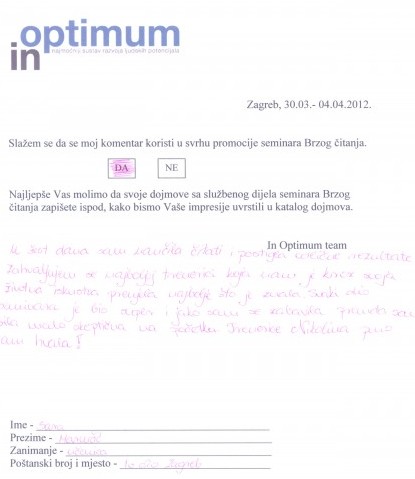 in optimum
najmoćniji sustav razvoja ljudskih potencijala
Zagreb, 30.03.- 04.04.2012.
Slažem se da se moj komentar koristi u svrhu promocije seminara Brzog čitanja.
DA NE
Najljepše Vas molimo da svoje dojmove sa službenog dijela seminara Brzog
čitanja zapišete ispod, kako bismo Vaše impresije uvrstili u katalog dojmova.
In Optimum team
U šest dana sam naučila čitati i postigla odlične rezultate
Zahvaljujem se najboljoj trenerici koja nam je kroz svoja
životna iskustva prenijela najbolje što je znala. Svaki dio
seminara je bio super i jako sam se zabavila
bila malo skeptična na početku Trenerice Nikolina puno
vam hvala!
Ime - Sara
Prezime -
Zanimanje - učenica
Poštanski broj i mjesto - 10 020 Zagreb